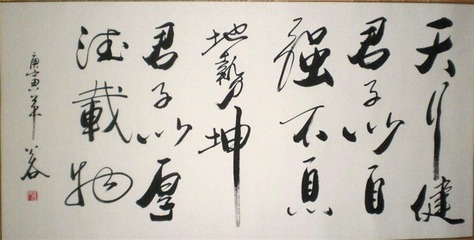 天行健
君子以自
强不息
地勢坤
君子以厚
德載物
庚寅年